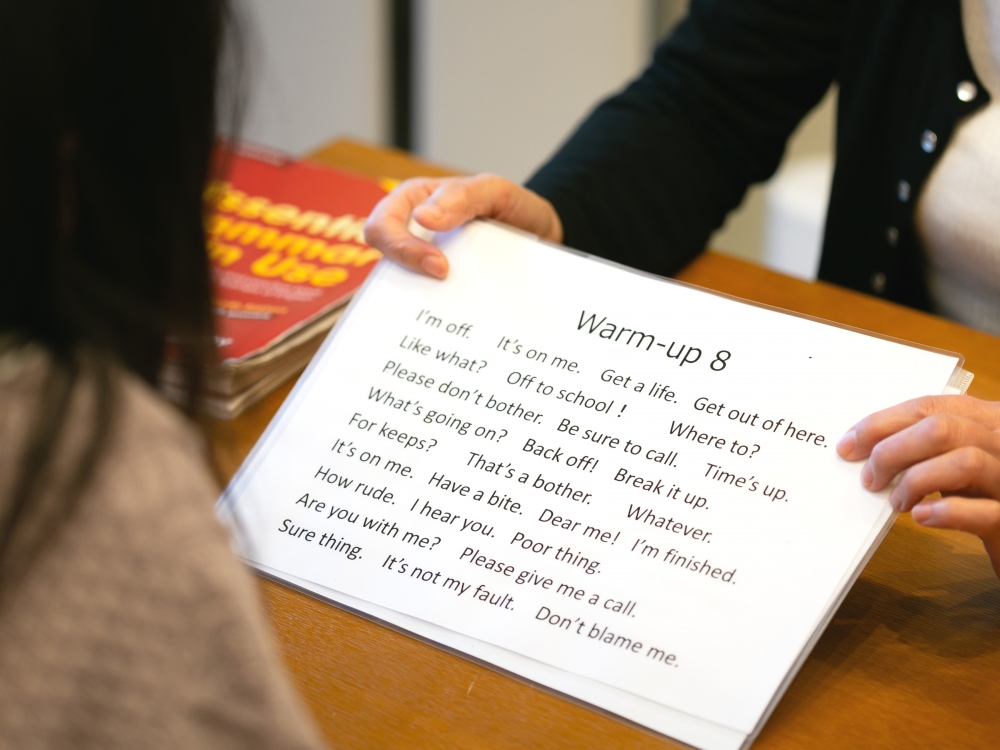 Warm-up 8
I'm off. It's on me. Get a life. Get out of here.
Like what? Off to school ! Where to?
Please don't bother. Be sure to call. Time's up.
What's going on? Back off! Break it up.
For keeps? That's a bother. Whatever.
It's on me. Have a bite. Dear me! I'm finished.
How rude. I hear you. Poor thing.
Are you with me? Please give me a call.
Sure thing. It's not my fault. Don't blame me.
Essential
Grammar
in Use